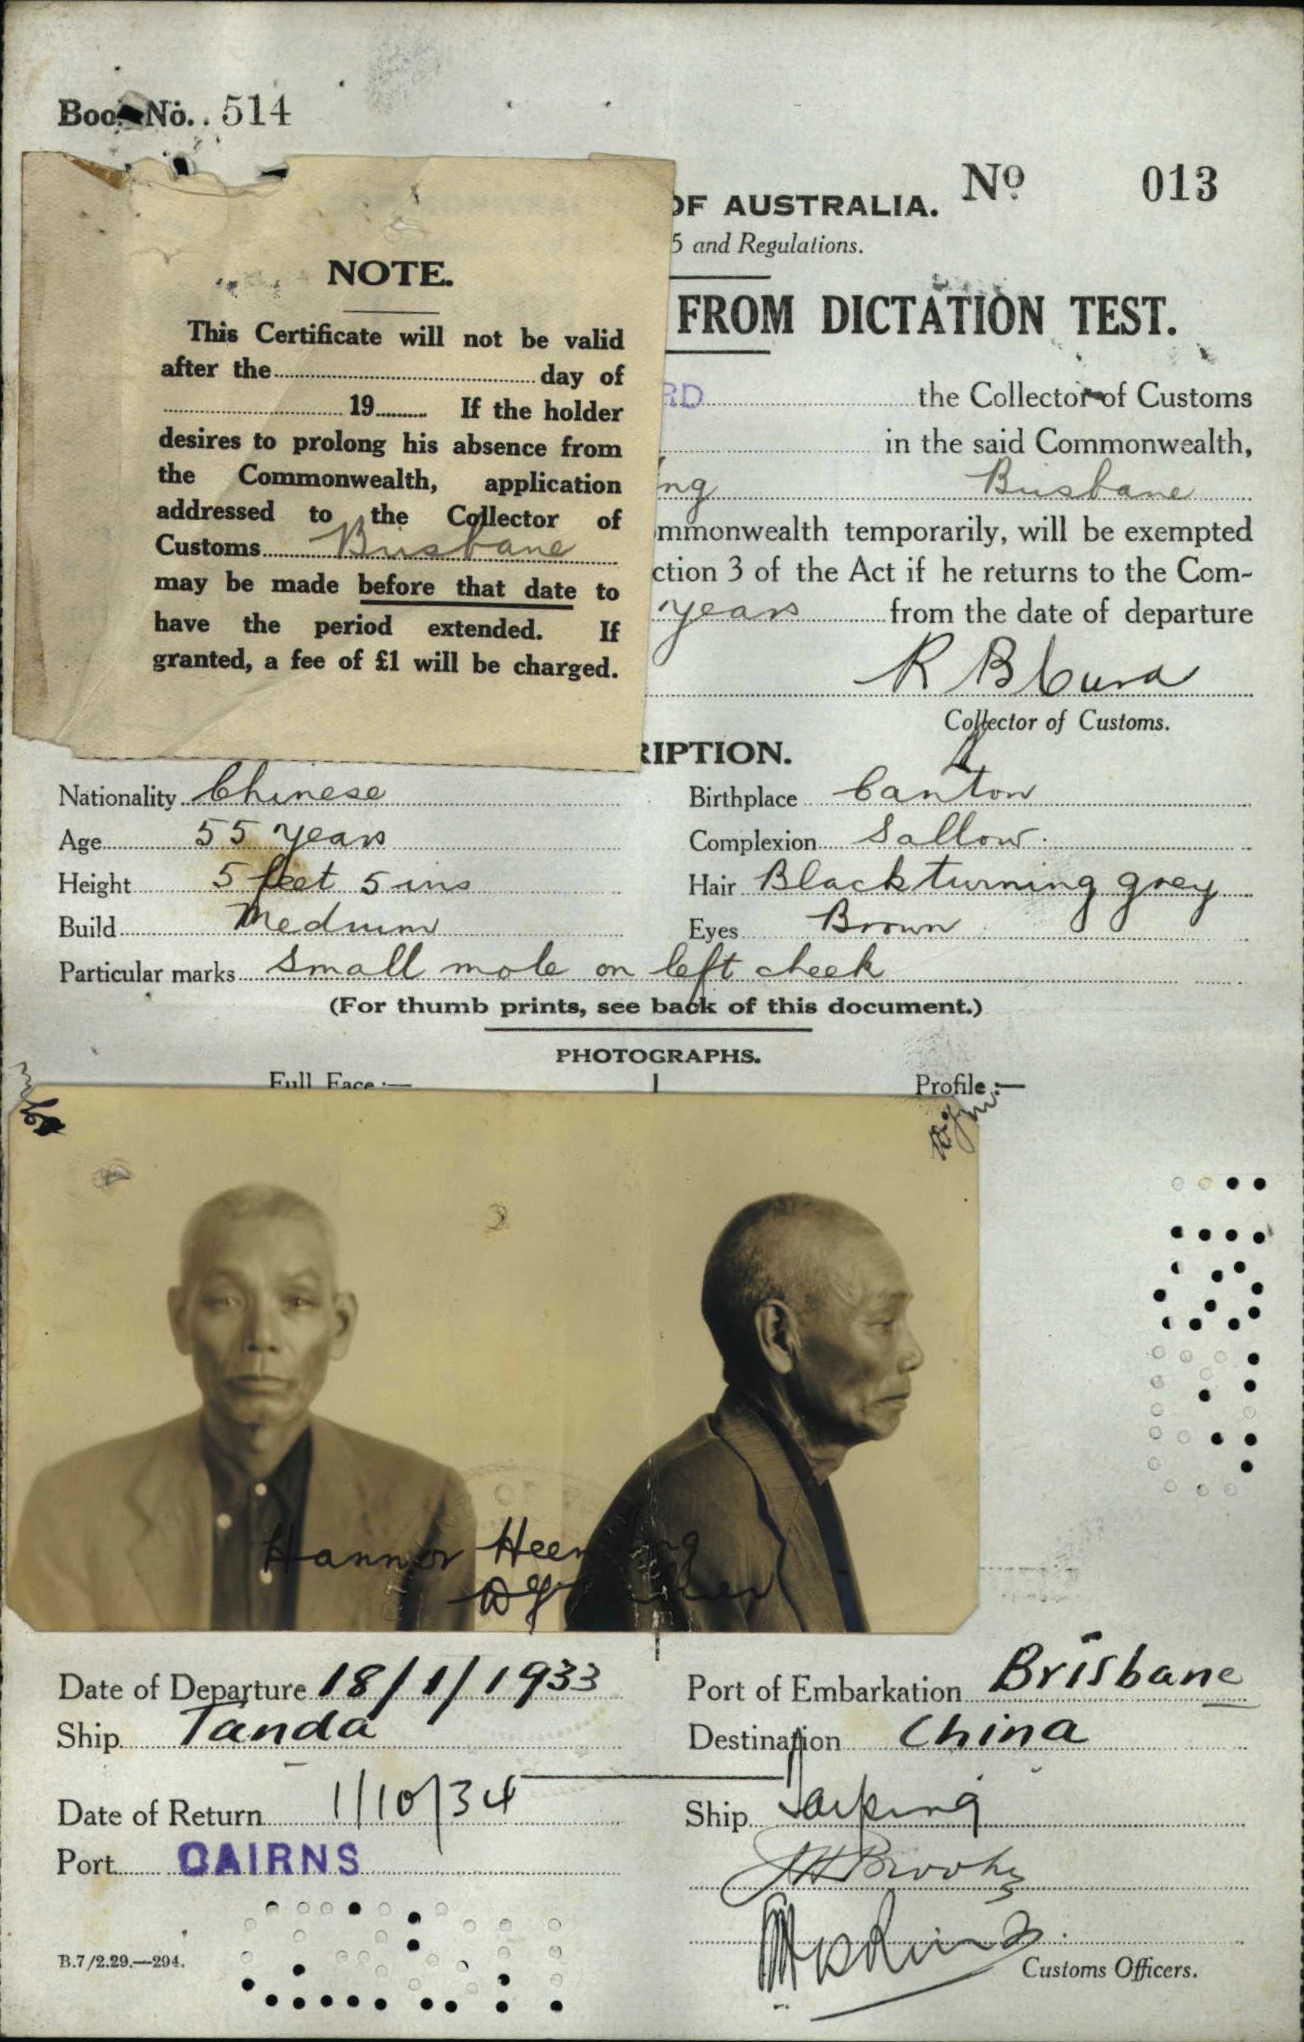 Book No. 514
No 013
OF AUSTRALIA.
5 and Regulations.
FROM DICTATION TEST.
RD the Collector of Customs
in the said Commonwealth,
ing Brisbane
ommonwealth temporarily, will be exempted
ction 3 of the Act if he returns to the Com-
years from the date of departure
Collector of Customs.
NOTE.
This Certificate will not be valid
after the day of
19 If the holder
desires to prolong his absence from
the Commonwealth, application
addressed to the Collector of
Customs Brisbane
may be made before that date to
have the period extended. If
granted, a fee of £1 will be charged.
RIPTION.
Nationality Chinese Birthplace Canton
Age 55 years Complexion Sallow.
Height 5 feet 5 ins Hair Black turning grey
Build Medium Eyes Brown
Particular marks Small mole on left cheek
(For thumb prints, see back of this document.)
PHOTOGRAPHS.
Full Face:— Profile:—
Date of Departure 18/1/1933 Port of Embarkation Brisbane
Ship Tanda Destination China
Date of Return 1/10/34 Ship Taiping
Port CAIRNS
B.7/2.29.—294.
Customs Officers.